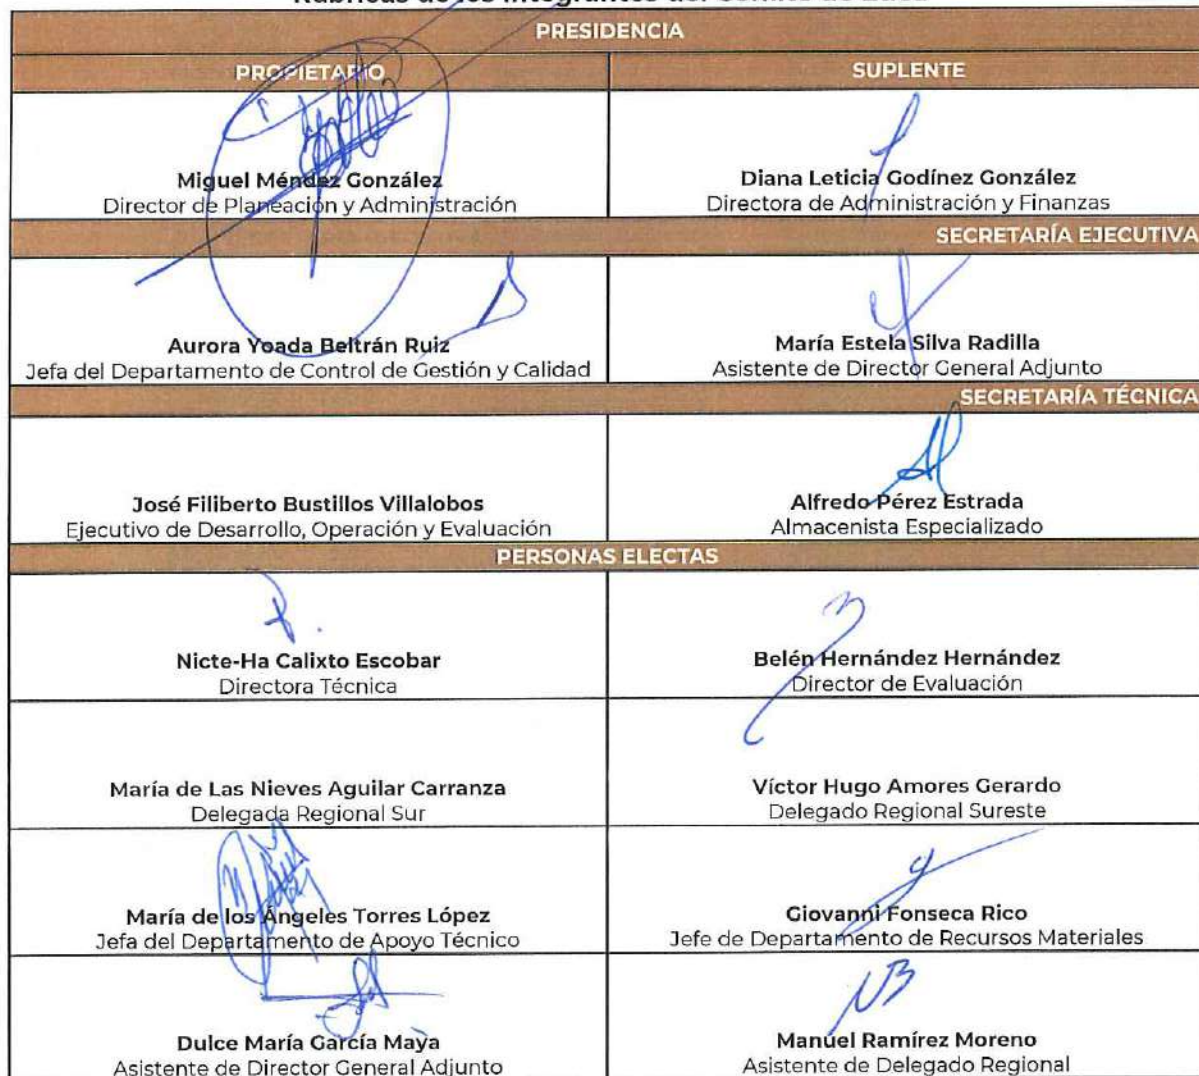 Rúbricas de los Integrantes del Comité de Ética
PRESIDENCIA
PROPIETARIO
SUPLENTE
Miguel Méndez González
Director de Planeación y Administración
Diana Leticia Godínez González
Directora de Administración y Finanzas
SECRETARÍA EJECUTIVA
Aurora Yoada Beltrán Ruiz
Jefa del Departamento de Control de Gestión y Calidad
María Estela Silva Radilla
Asistente de Director General Adjunto
SECRETARÍA TÉCNICA
José Filiberto Bustillos Villalobos
Ejecutivo de Desarrollo, Operación y Evaluación
Alfredo Pérez Estrada
Almacenista Especializado
PERSONAS ELECTAS
Nicte-Ha Calixto Escobar
Directora Técnica
Belén Hernández Hernández
Director de Evaluación
María de Las Nieves Aguilar Carranza
Delegada Regional Sur
Víctor Hugo Amores Gerardo
Delegado Regional Sureste
María de los Ángeles Torres López
Jefa del Departamento de Apoyo Técnico
Giovanni Fonseca Rico
Jefe de Departamento de Recursos Materiales
Dulce María García Maya
Asistente de Director General Adjunto
Manuel Ramírez Moreno
Asistente de Delegado Regional